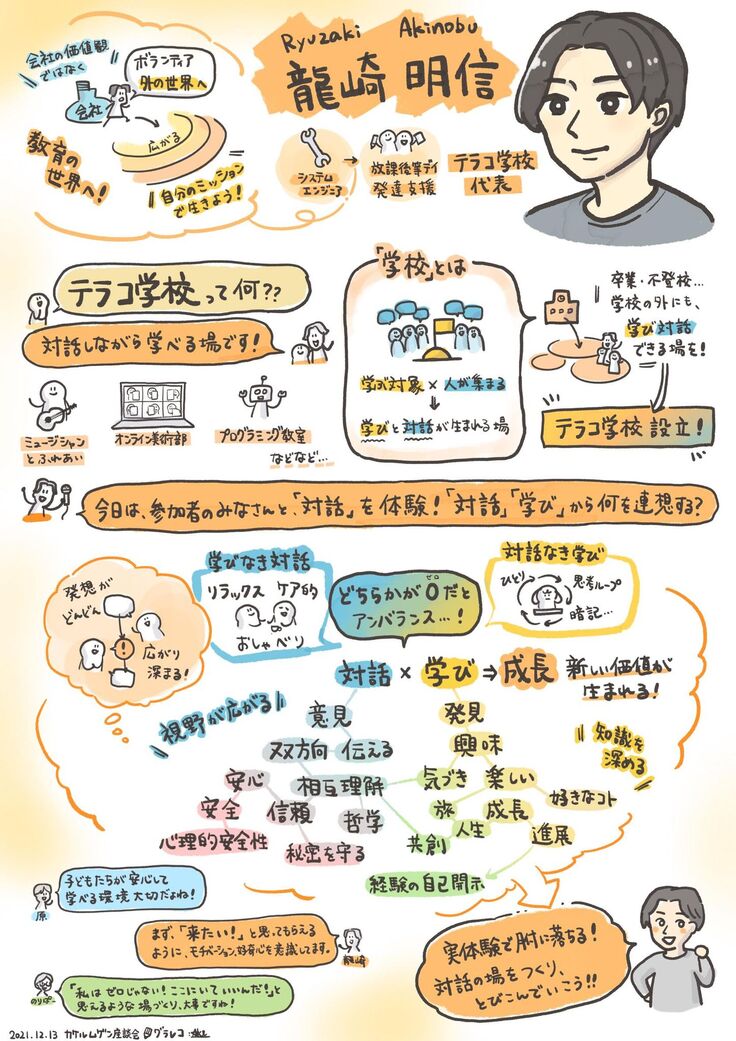 Ryuzaki Akinobu
龍崎 明信
会社の価値観
ではなく
会社
ボランティア
外の世界へ
広がる
教育の
世界へ!
自分のミッション
で生きよう!
システム
エンジニア
放課後等デイ
発達支援
テラコ学校
代表
テラコ学校って何??
対話しながら学べる場です!
ミュージシャン
とふれあい
オンライン美術部
プログラミング教室
などなど…
「学校」とは
学ぶ対象×人が集まる
学びと対話が生まれる場
卒業・不登校…
学校の外にも、
学び対話
できる場を!
テラコ学校 設立!
今日は、参加者のみなさんと、「対話」を体験!「対話」「学び」から何を連想する?
発想が
どんどん
!
広がり
深まる!
学びなき対話
リラックス ケア的
おしゃべり
どちらかが0だと
ゼロ
アンバランス…!
対話なき学び
ひとり
思考ループ
暗記…
対話×学び⇒成長 新しい価値が
生まれる!
視野が広がる!
知識を
深める
意見
発見
双方向 伝える
興味
安心
相互理解
気づき 楽しい
好きなコト
安全
信頼
哲学
旅
成長
人生
心理的安全性
秘密を守る
共創
進展
経験の自己開示
子どもたちが安心して
学べる環境大切だよね!
原
まず、「来たい!」と思ってもらえる
ように、モチベーション、好奇心を意識してます。
龍崎
「私はゼロじゃない!ここにいていいんだ!」と
思えるような場づくり、大事ですね!
のりぴー
実体験で肘に落ちる!
対話の場をつくり、
とびこんでいこう!!
2021.12.13 カケルムゲン座談会 グラレコ